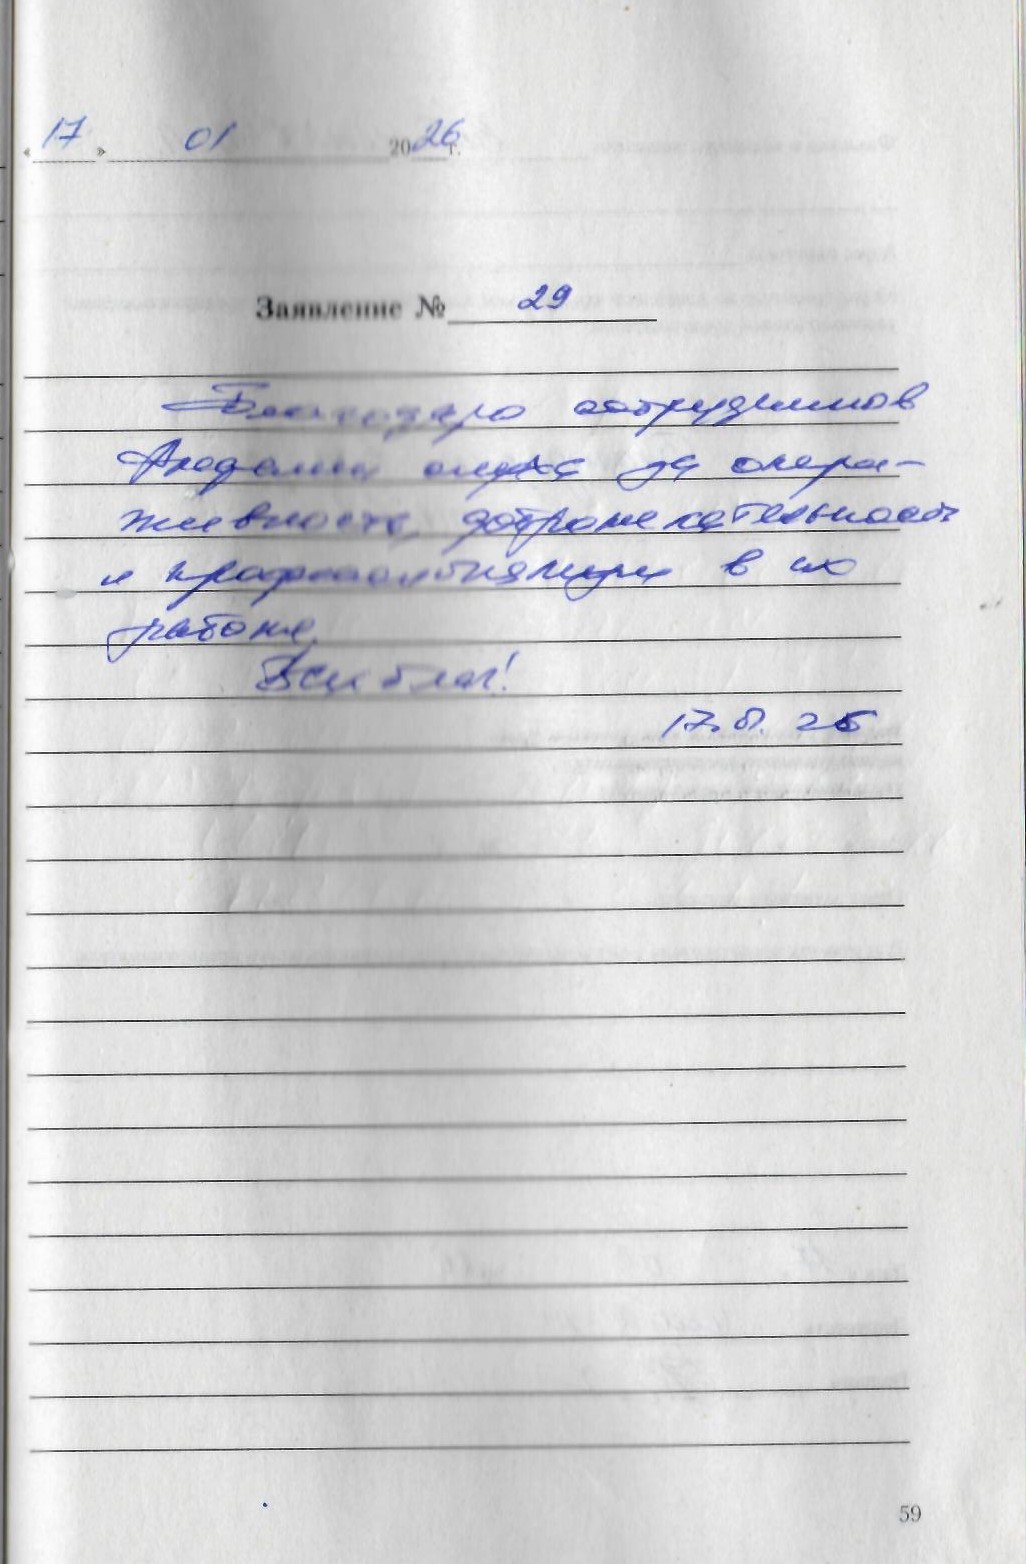 «17» 01 2026 г.
Заявление № 29
Благодарю сотрудников
за опера-
доброжелательность
и в их
работе.
Всех благ!
17.01.26
59